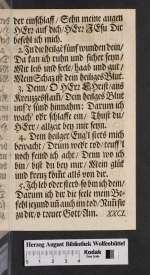 der einschlaff / Sehn meine augen
HErr auf dich / HErr JEsu Dir
befehl ich mich.
2. In die heilge fünf wunden dein /
Da kan ich ruhn und sicher seyn /
Mit leib und seele / haab und gut /
Mein Schaz ist dein heiliges Blut.
3. Denn / O HErr Christ ans
Kreuzes stamm / Dein heiligs Blut
uns' sünd hinnahm: Darum ich
wach / oder schlaffe ein / Thust du /
HErr / allzeit bey mir seyn.
4. Dein heilger Engl stets mich
bewacht / Drum weder tod / teuff'l
noch feind ich acht / Denn wo ich
bin / bist du bey mir / Mein glük
und kreuz kömt alls von dir.
5. Ich leb oder sterb / so bin ich dein /
Darum ich dir die seele mein Be-
fehl iezund uñ auch im tod / Nim sie
zu dir / o treuer Gott / Am.
XXCI.
Herzog August Bibliothek Wolfenbüttel
Kodak